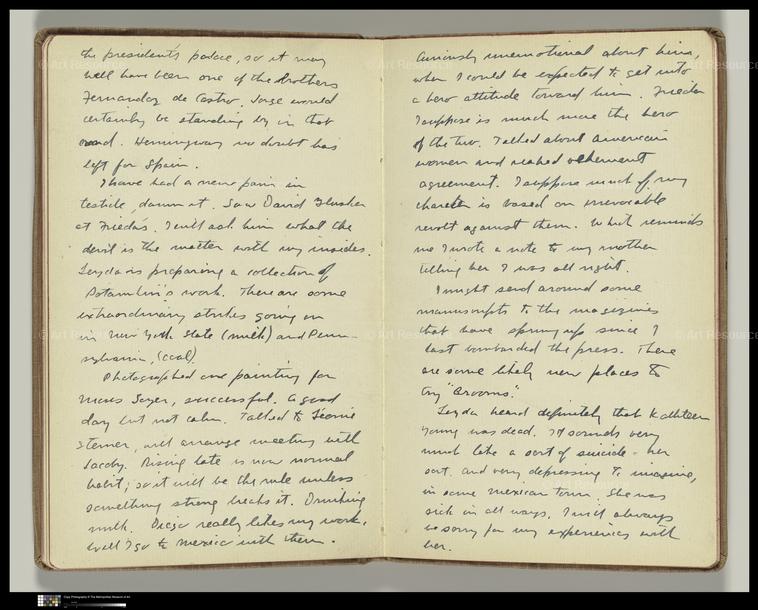 the president's palace, so it may
well have been one of the brothers
Fernandez de Castro. Jorge would
certainly be standing by in that
Hemingway no doubt has
left for Spain.
I have had a new pain in
testicle, damn it. Saw David
at Frieda's. I will ask him what the
devil is the matter with my insides.
Leyda is preparing a collection of
Potamkin's work. There are some
extraordinary strikes going on
in New York state (milk) and Penn-
sylvania, (coal).
Photographed one painting for
Moses Soyer, successful. A good
day but not calm. Talked to
will arrange meeting with
Rising late is now normal
habit; so it will be the rule unless
something strong breaks it. Drinking
milk. Diego really likes my work.
Will I go to Mexico with them.
Curiously unemotional about him,
when I could be expected to get into
a hero attitude toward him. Frieda
I suppose is much more the hero
of the two. Talked about American
women and reached vehement
agreement. I suppose much of my
character is based on irrevocable
revolt against them. Which reminds
me I wrote a note to my mother
telling her I was all right.
I might send around some
manuscripts to the magazines
that have sprung up since I
last bombarded the press. There
are some likely new places to
try "Grooms."
Leyda heard definitely that Kathleen
Young was dead. It sounds very
much like a sort of suicide - her
sort. and very depressing to imagine,
in some Mexican town. She was
sick in all ways. I will always
be sorry for my experiences with
her.
© Art Resource
Copy Photography © The Metropolitan Museum of Art